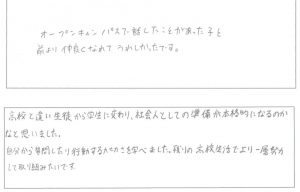 オープンキャンパスで話したことがあった子と
前より仲良くなれてうれしかったです。
高校と違い生徒から学生に変わり、社会人としての準備が本格的になるのか
なと思いました。
自分から質問したり行動する大切さを学べました。残りの高校生活でより一層努力
して取り組みたいです